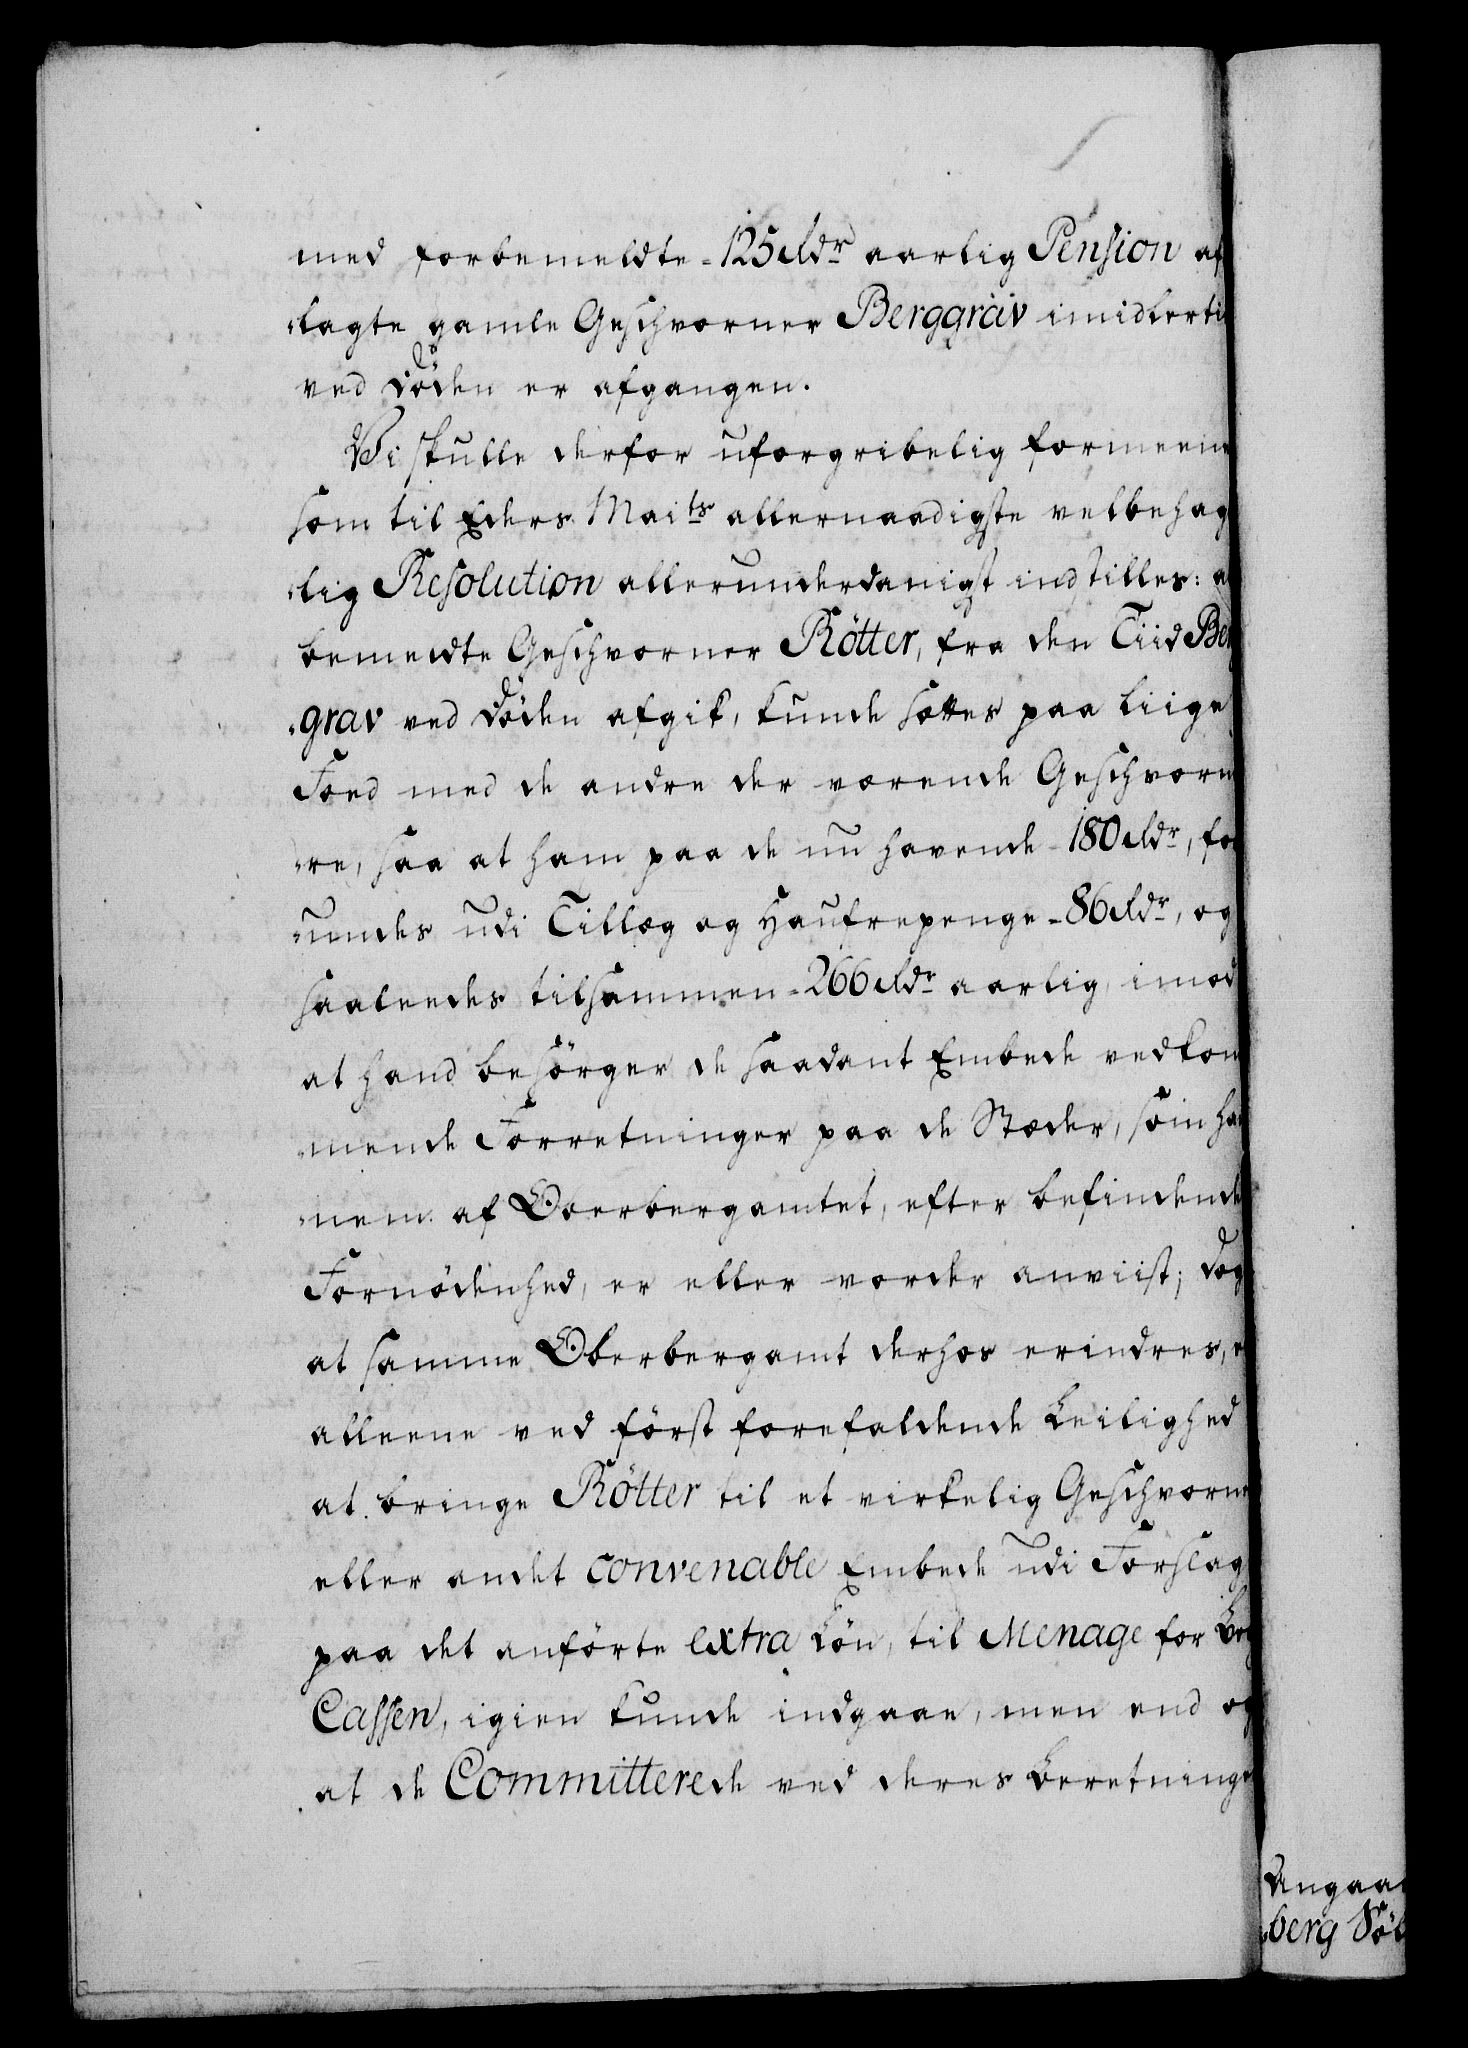 med forbemeldte - 125 Rdr aarlig Pension af
lagte gamle Geschvorner Berggräv imidlerti
ved Döden er afgangen.
Vi skulle derfor uforgribelig formeene
som til Eders Maits allernaadigste velbehag
lig Resolution allerunderdanigst indstilles: at
bemeldte Geschvorner Rötter, fra den Tiid Berg
grav ved Döden afgik, kunde sættes paa liige
Foed med de andre der værende Geschvorn
re, saa at ham paa de nu havende - 180 Rdr, for
undes udi Tillæg og Haufrepenge - 86 Rdr, og
saaleedes tilsammen - 266 Rdr aarlig, imod
at hand besörger de saadant Embede vedkom
mende Forretninger paa de Stæder, som han
nem af Oberbergamtet, efter befindende
Fornödenhed, er eller vorder anviist; dog
at samme Oberbergamt derhos erindres, ei
alleene ved först forefaldende Leilighed
at bringe Rötter til et virkelig Geschvorne
eller andet convenable Embede udi Forslag
paa det anförte extra Lön, til Menage for
Cassen, igien kunde indgaae, men end og
at de Committerede ved deres Beretninge
Angaa
berg Söl